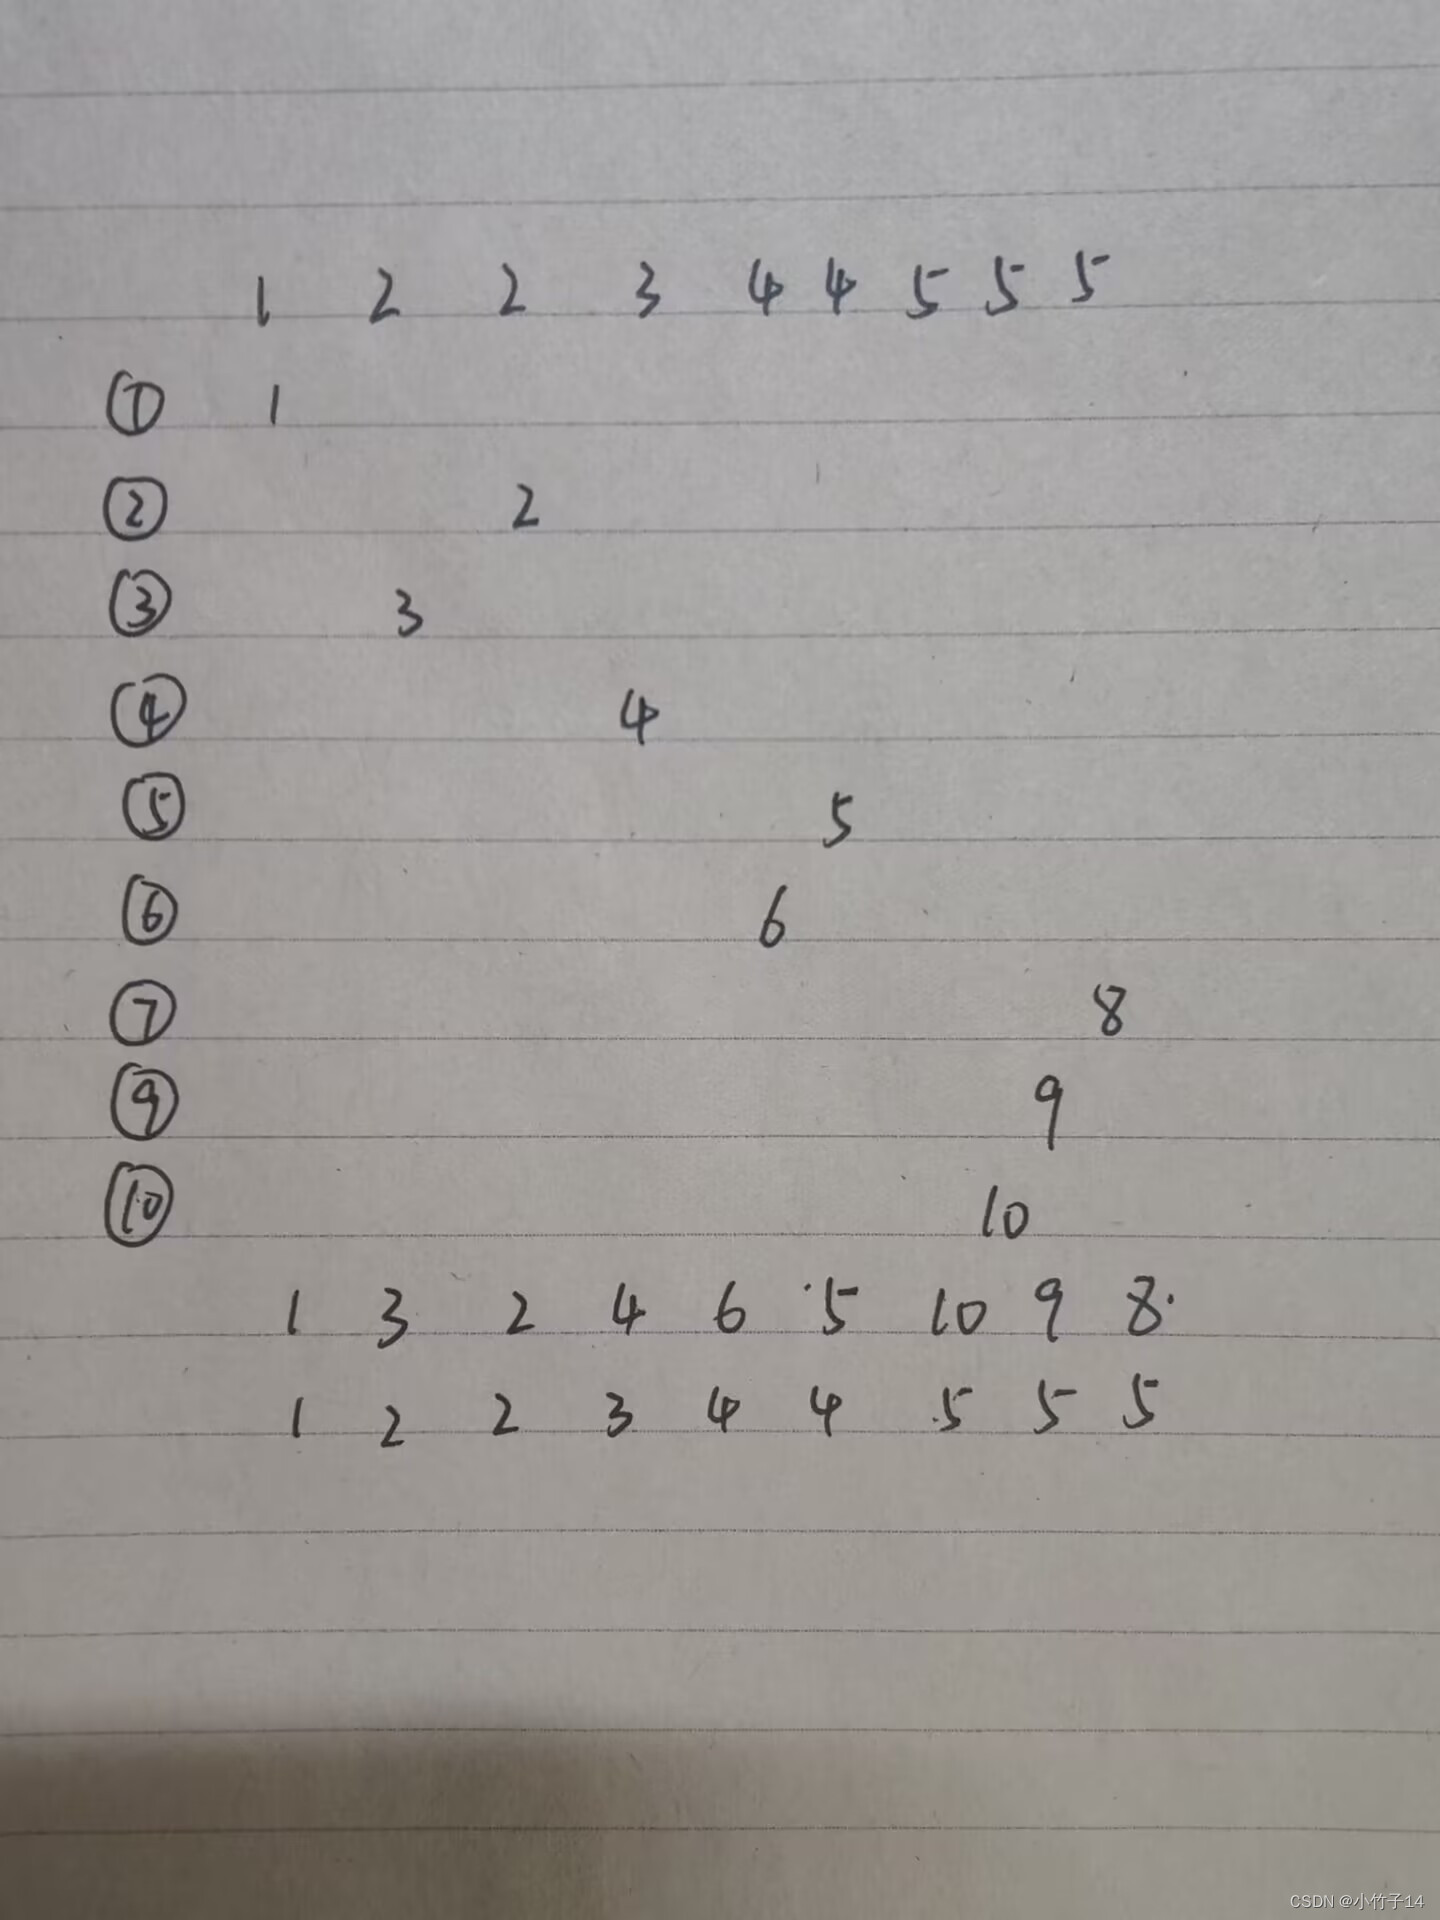 1 2 2 3 4 4 5 5 5
① 1
② 2
③ 3
④ 4
⑤ 5
⑥ 6
⑦ 8
⑨ 9
⑩ 10
1 3 2 4 6 5 10 9 8
1 2 2 3 4 4 5 5 5
CSDN @小竹子14